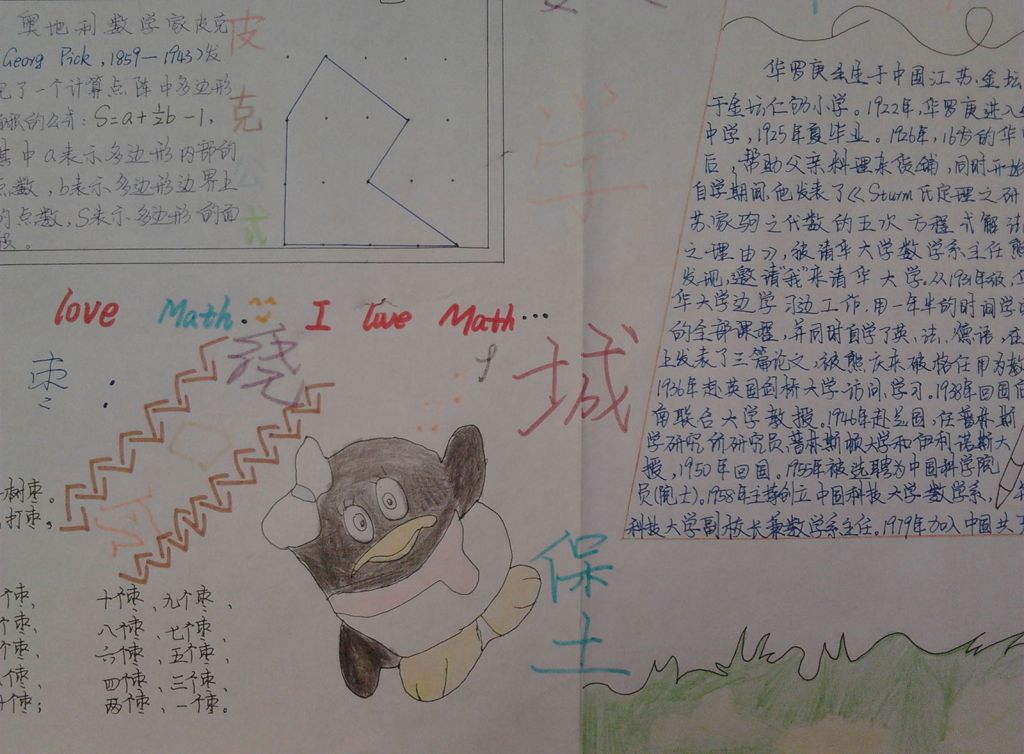 奥地利数学家皮克
(Georg Pick, 1859—1943)发
见了一个计算点阵中多边形
面积的公式: S=a+½b-1,
其中a表示多边形内部的
点数, b表示多边形边界上
的点数, S表示多边形的面
积。
皮
克
公
式
love Math. I love Math...
枣
绕
学
城
保
土
树枣。
打枣,
个枣、 十个枣、九个枣、
个枣、 八个枣、七个枣、
个枣、 六个枣、五个枣、
个枣、 四个枣、三个枣、
个枣; 两个枣、一个枣。
华罗庚出生于中国江苏金坛
于金坛仁劬小学。1922年,华罗庚进入
中学,1925年夏毕业。1926年,16岁的华
后,帮助父亲料理杂货铺,同时开始
自学期间,他发表了《Sturm氏定理之研
苏家驹之代数的五次方程式解法
之理由》,被清华大学数学系主任熊
发现,邀请“我”来清华大学,从1931年级,
华大学边学习边工作,用一年半的时间学
的全部课程,并同时自学了英、法、德语,在
上发表了三篇论文,被熊庆来破格任用为数
1936年赴英国剑桥大学访问、学习。1938年回国
南联合大学教授。1946年赴美国,任普林斯
学研究所研究员、普林斯顿大学和伊利诺斯大
授,1950年回国。1955年被选聘为中国科学院
员(院士)。1958年主持创立中国科技大学数学系,
科技大学副校长兼数学系主任。1979年加入中国共